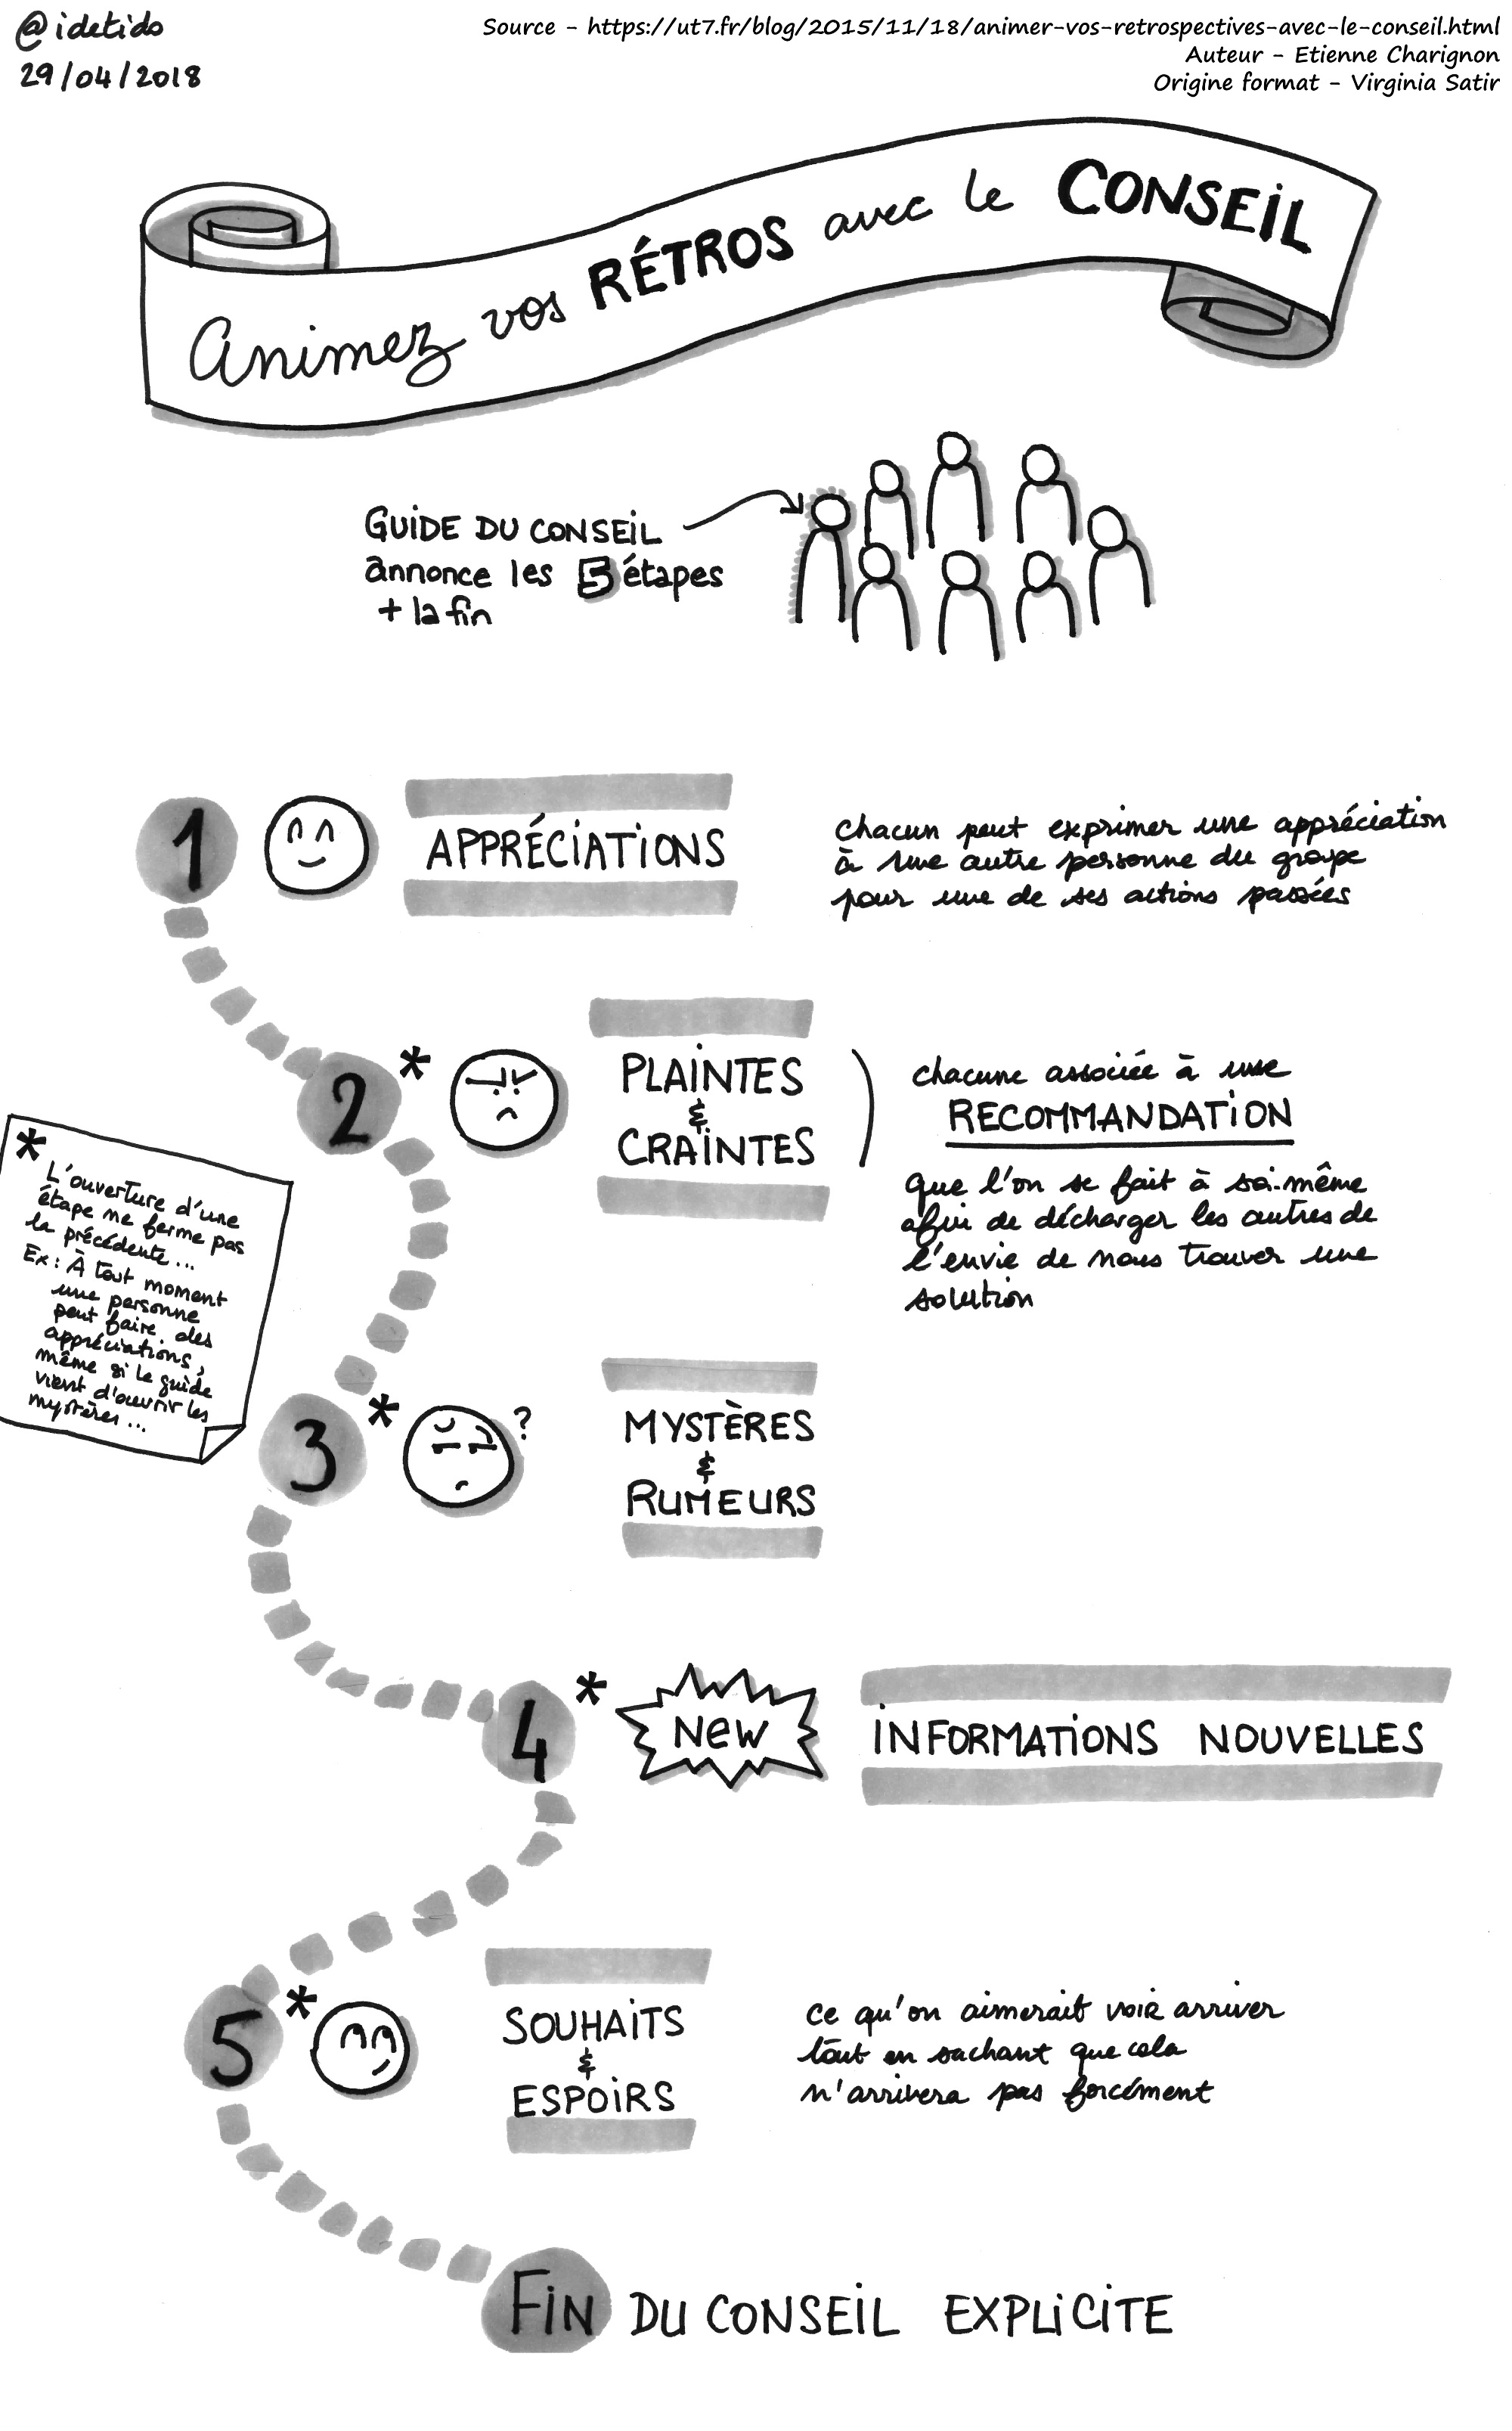 @idetido
29/04/2018
Source - https://ut7.fr/blog/2015/11/18/animer-vos-retrospectives-avec-le-conseil.html
Auteur - Etienne Charignon
Origine format - Virginia Satir
Animez vos RÉTROS avec le CONSEIL
GUIDE DU CONSEIL
annonce les 5 étapes
+ la fin
1
APPRÉCIATIONS
chacun peut exprimer une appréciation
à une autre personne du groupe
pour une de ses actions passées
2 *
PLAINTES
&
CRAINTES
chacune associée à une
RECOMMANDATION
que l'on se fait à soi-même
afin de décharger les autres de
l'envie de nous trouver une
solution
*
L'ouverture d'une
étape ne ferme pas
la précédente...
Ex: À tout moment
une personne
peut faire des
appréciations,
même si le guide
vient d'ouvrir les
mystères...
3 *
?
MYSTÈRES
&
RUMEURS
4 *
NEW
INFORMATIONS NOUVELLES
5 *
SOUHAITS
&
ESPOIRS
ce qu'on aimerait voir arriver
tout en sachant que cela
n'arrivera pas forcément
FIN DU CONSEIL EXPLICITE